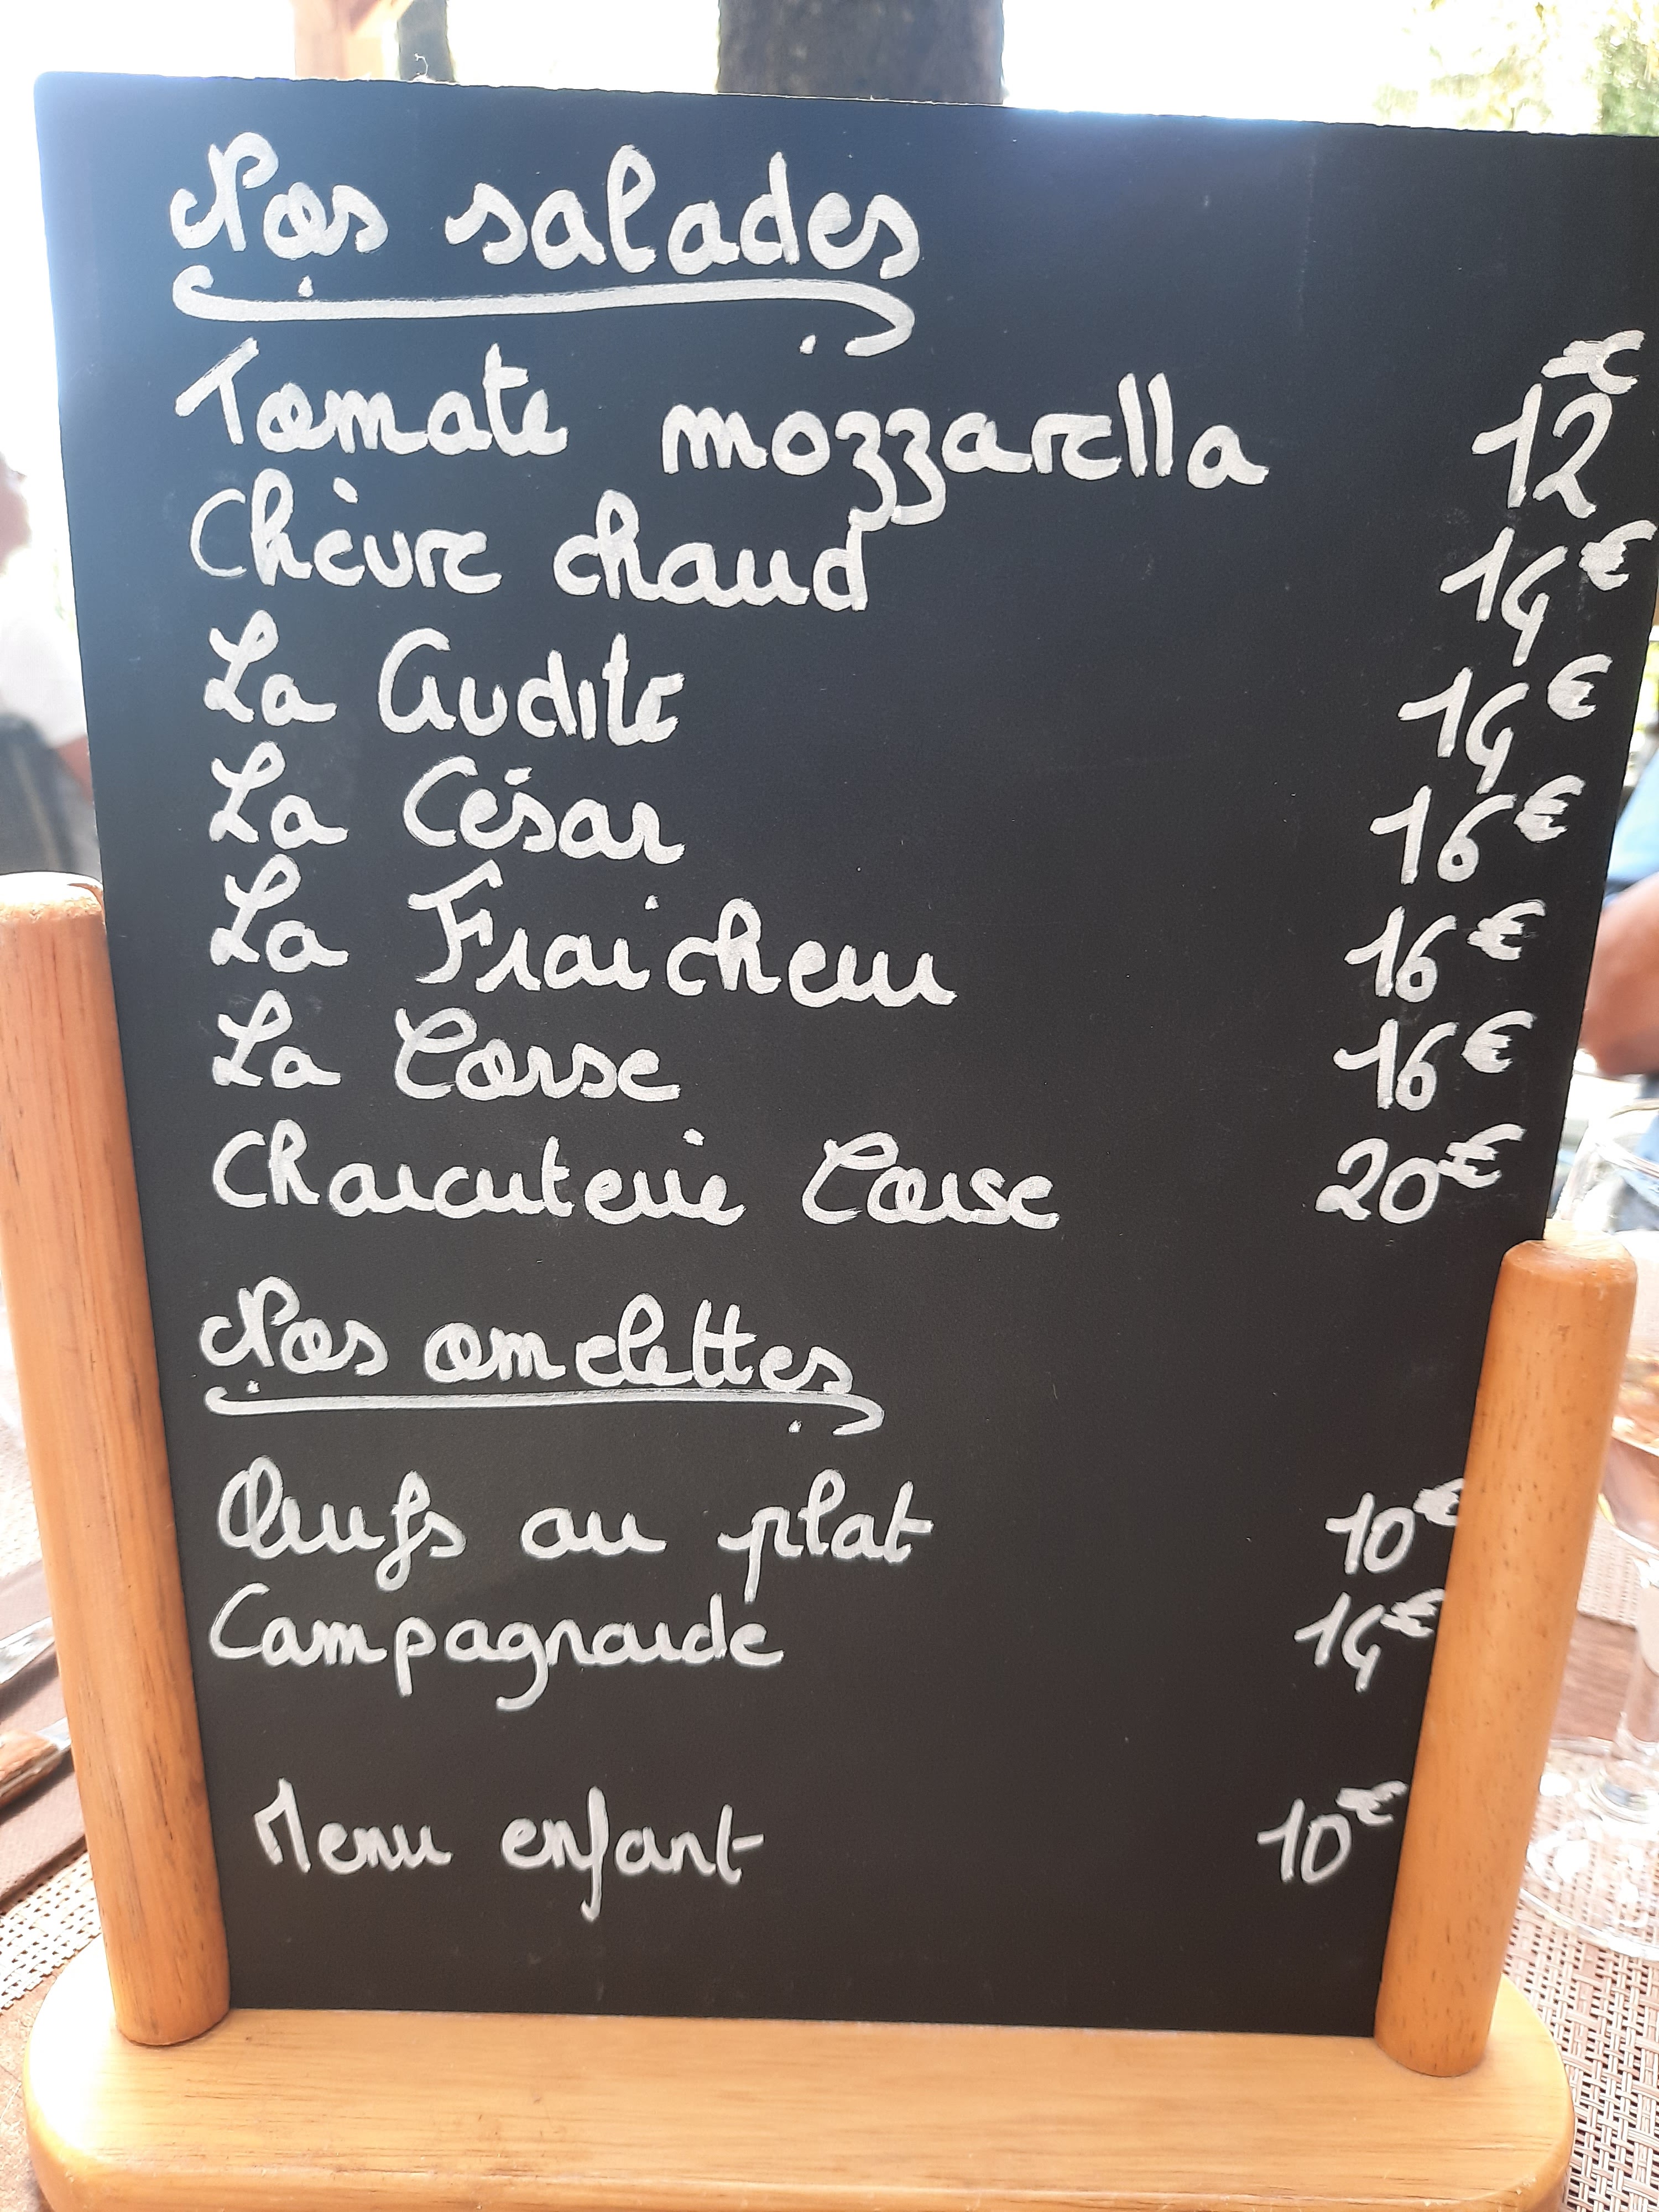 Nos salades
Tomate mozzarella 12€
Chèvre chaud 14€
La Audite 14€
La César 16€
La Fraicheur 16€
La Corse 16€
Charcuterie Corse 20€
Nos omelettes
Œufs au plat 10€
Campagnarde 14€
Menu enfant 10€